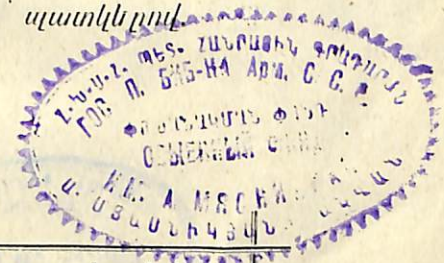 պատկերով.
Հ.Ն.Ս.Հ. ՊԵՏ. ՀԱՆՐԱՅԻՆ ԳՐԱԴԱՐԱՆ
ГОС П. БИБ-КА Арм. С. С. Р.
ՓՈԽԱՆԱԿՄԱՆ ՖՈՆԴ
ОБМЕННЫЙ ФОНД
ИМ. А. МЯСНИК
Ա. ՄՅԱՍՆԻԿՅԱՆ